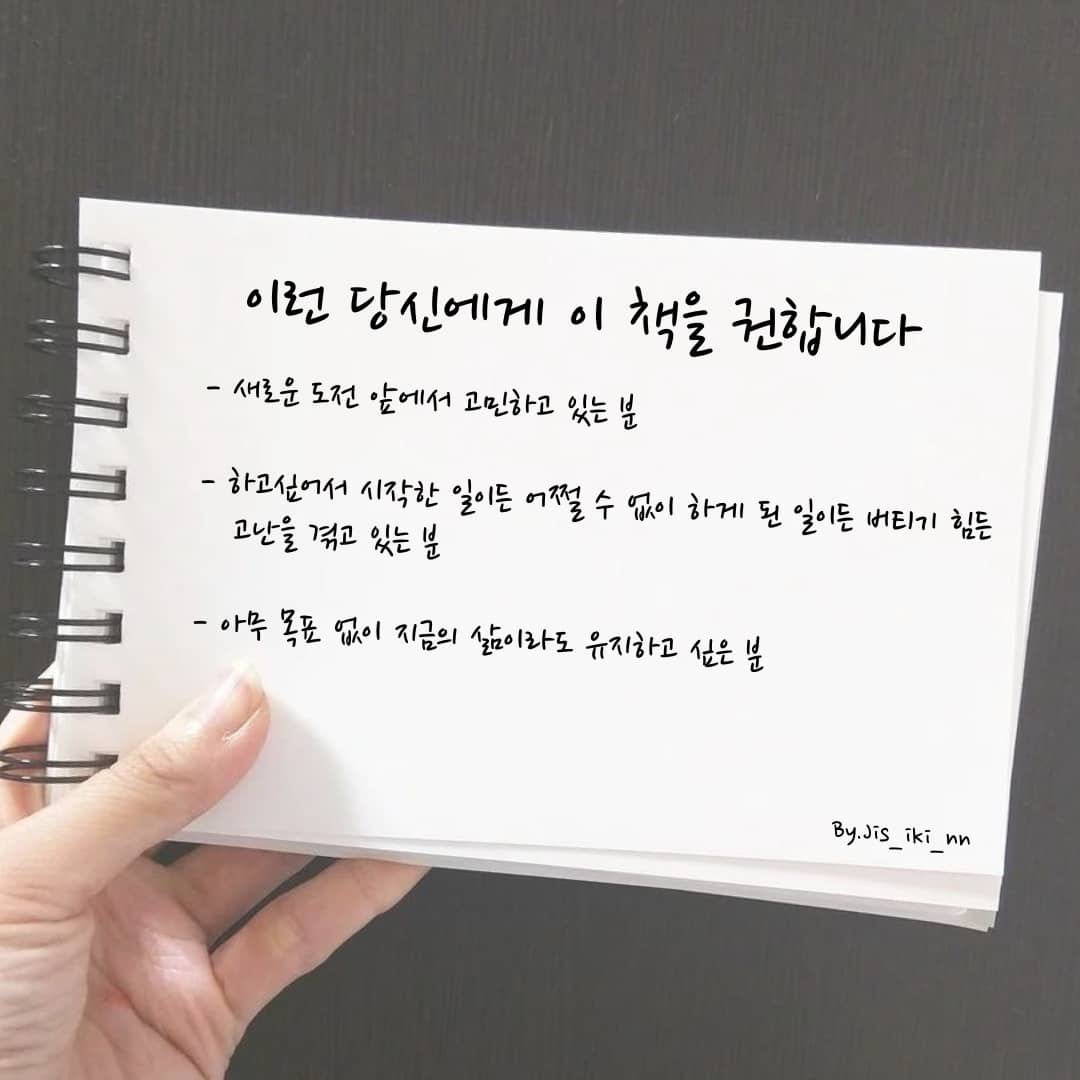 이런 당신에게 이 책을 권합니다
- 새로운 도전 앞에서 고민하고 있는 분
- 하고싶어서 시작한 일이든 어쩔 수 없이 하게 된 일이든 버티기 힘든
고난을 겪고 있는 분
- 아무 목표 없이 지금의 삶이라도 유지하고 싶은 분
By.Jis_iki_nn